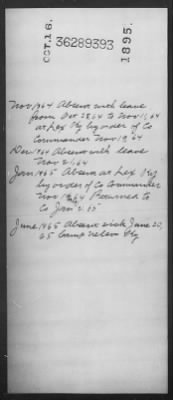 Oct. 16.
36289393
1895.
Nov 1864 Absent with leave
from Oct 28,64 to Nov 11,64
at Lex Ky by order of Co
Commander Nov 19, 64
Dec 1864 Absent with leave
Nov 21,64
Jan 1865 Absent at Lex Ky
by order of Co Commander
Nov 1864 Returned to
Co Jan 2 65
June 1865 Absent sick June 20,
65 Camp Nelson Ky